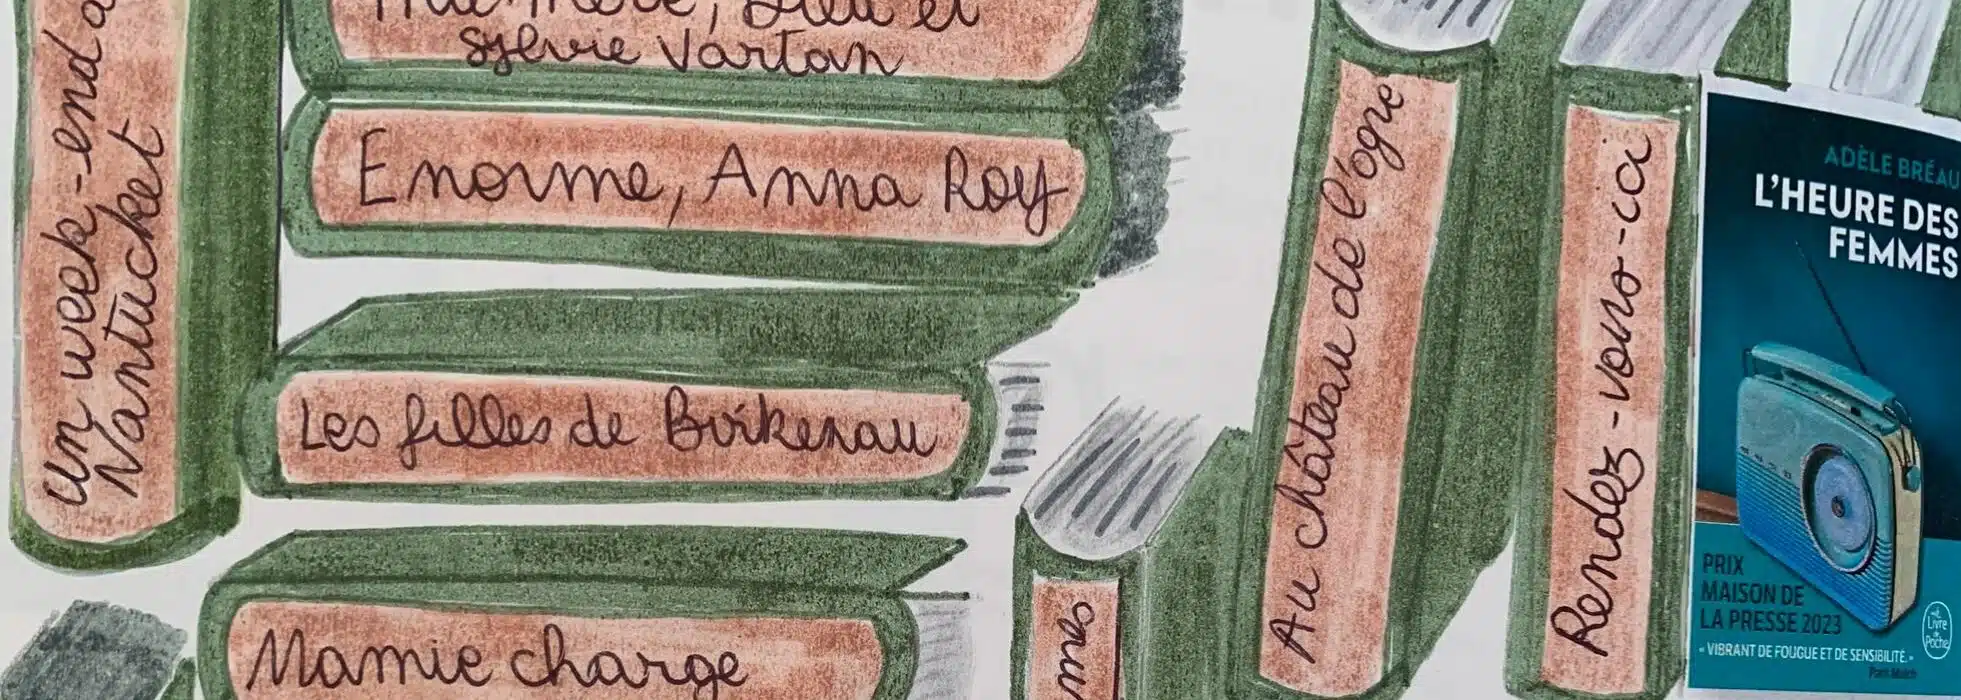 Un week-end à
Nantucket
Ma mère, Dieu et
Sylvie Vartan
Enorme, Anna Roy
Les filles de Birkenau
Mamie charge
mes
Au château de l'ogre
Rendez-vous-ici
ADÈLE BRÉAU
L'HEURE DES
FEMMES
PRIX
MAISON DE
LA PRESSE 2023
« VIBRANT DE FOUGUE ET DE SENSIBILITÉ. »
Paris Match
Le
Livre
de
Poche